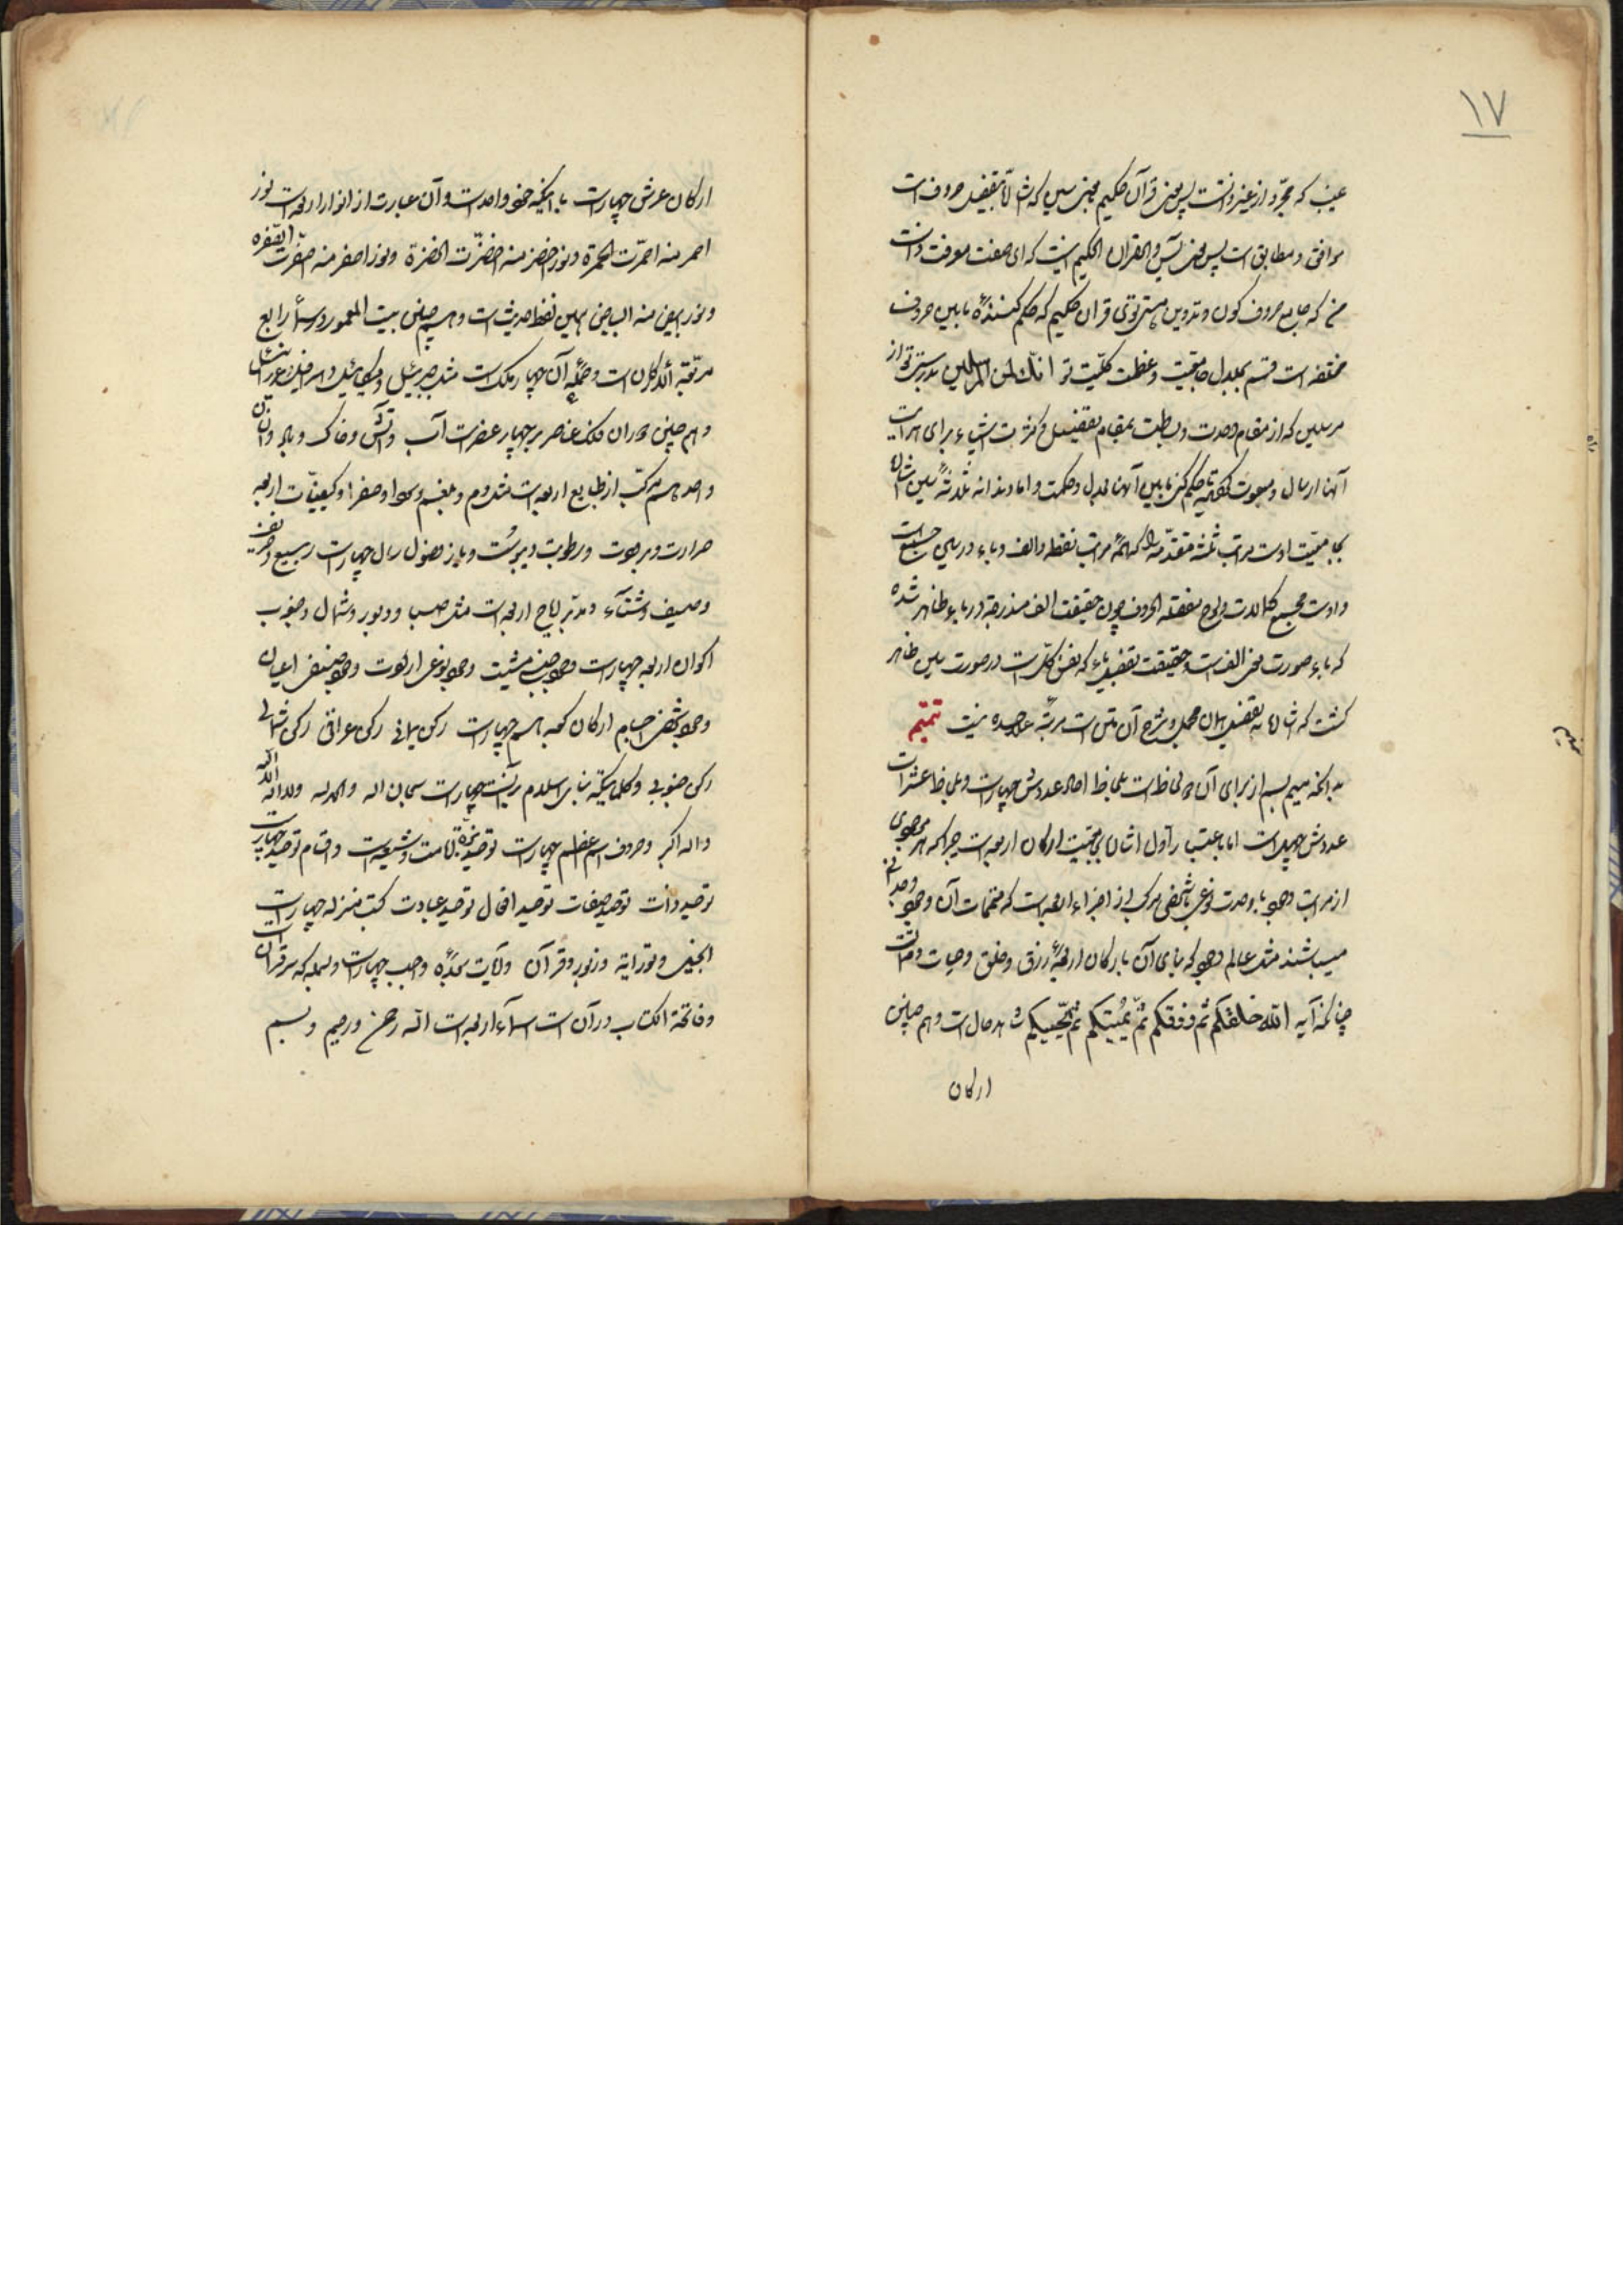 ۱۷
غیب که مجرد از غیر دانست پس معنی قرآن حکیم مجتبی سین که شأن تفصیل حروف است
موافق و مطابق است پس معنی یس والقرآن الحکیم اینست که ای صفت معرفت ذات
من که جامع حروف کون و تدوین هستی توئی قرآن حکیم که حکم کننده ما بین حروف
مختلفه است قسم بجلال جامعیت و عظمت کلیت تو انک لمن المرسلین بدرستی تو از
مرسلین که از مقام وحدت و بساطت بمقام تفصیل و کثرت اشیاء برای هدایت
آنها ارسال و مبعوث تا حکم کنی ما بین آنها بعدل و حکمت و اما دندانه ثلاثه سین شان
بجامعیت اوست مراتب ثلثه متقدمه را که مراتب نقطه والف و باء در سین جمع است
واوست مجمع کمالات حروف چون حقیقت الف مندرجه در باء ظاهر شده
که باء صورت الف است و حقیقت تفصیل باء که نفس کل است در صورت سین ظاهر
گشت که شأن تفصیل همان مجمل و شرح آن متن است مرتبه علیحده نیست تتمیم
بدانکه میم بسم از برای آن دو لحاظ است بلحاظ احاد عددش چهار است و بلحاظ عشرات
عددش چهل است اما باعتبار اول اشاره بمرتبه ارکان اربعه است چرا که هر موجودی
از مراتب وجود با وحدت نوعی یا شخصی مرکب از اجزاء اربعه است که متممات آن وجود
میباشند مثل عالم وجود که بنای آن بارکان اربعه رزق و خلق و حیات و ممات است
چنانکه آیه الله خلقکم ثم رزقکم ثم یمیتکم ثم یحییکم شاهد حال است و هم چنین
ارکان
ارکان عرش چهار است با اینکه خود واحد است و آن عبارت از انوار اربعه است نور
احمر منه احمرت الحمرة و نور اخضر منه اخضرت الخضرة و نور اصفر منه اصفرت الصفره
و نور ابیض منه البیاض همین لفظ حدیث است و هم چنین بیت المعمور در سماء رابع
مربعة الارکان است و حمله آن چهار ملک است مثل جبرئیل و میکائیل و اسرافیل و عزرائیل
و هم چنین دوران فلک عناصر بر چهار عنصر است آب و آتش و خاک و باد و انسان
واحد هم مرکب از طبایع اربعه است مثل دم و بلغم و سودا و صفرا و کیفیات اربعه
حرارت و برودت و رطوبت و یبوست و باز فصول سال چهار است ربیع و خریف
و صیف و شتاء و مدبر ریاح اربعه است مثل صبا و دبور و شمال و جنوب
اکوان اربعه چهار است وجود جنسی مشیت وجود نوعی وجود صنفی اعیان
وجود شخصی اجسام ارکان کعبه هم چهار است رکن یمانی رکن عراقی رکن شامی
رکن جنوبی و کلماتیکه بنای اسلام بر آنست چهار است سبحان الله والحمد لله ولا اله الا الله
والله اکبر و حروف اسم اعظم چهار است توحید نبوة امامت و شیعه است و اقسام توحید چهار است
توحید ذات توحید صفات توحید افعال توحید عبادت کتب منزله چهار است
انجیل و توراية و زبور و قرآن و آیات سجده واجب چهار است و بسمله که سر قرآن
و فاتحة الکتاب در آن است اسماء اربعه است الله رحمن و رحیم و بسم